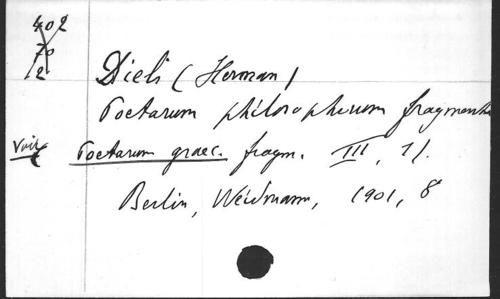 402
70
12
Diels (Herman)
Poetarum philosophorum fragmenta
Voir Poetarum graec. fragm. III, 1).
Berlin, Weidmann, 1901, 8